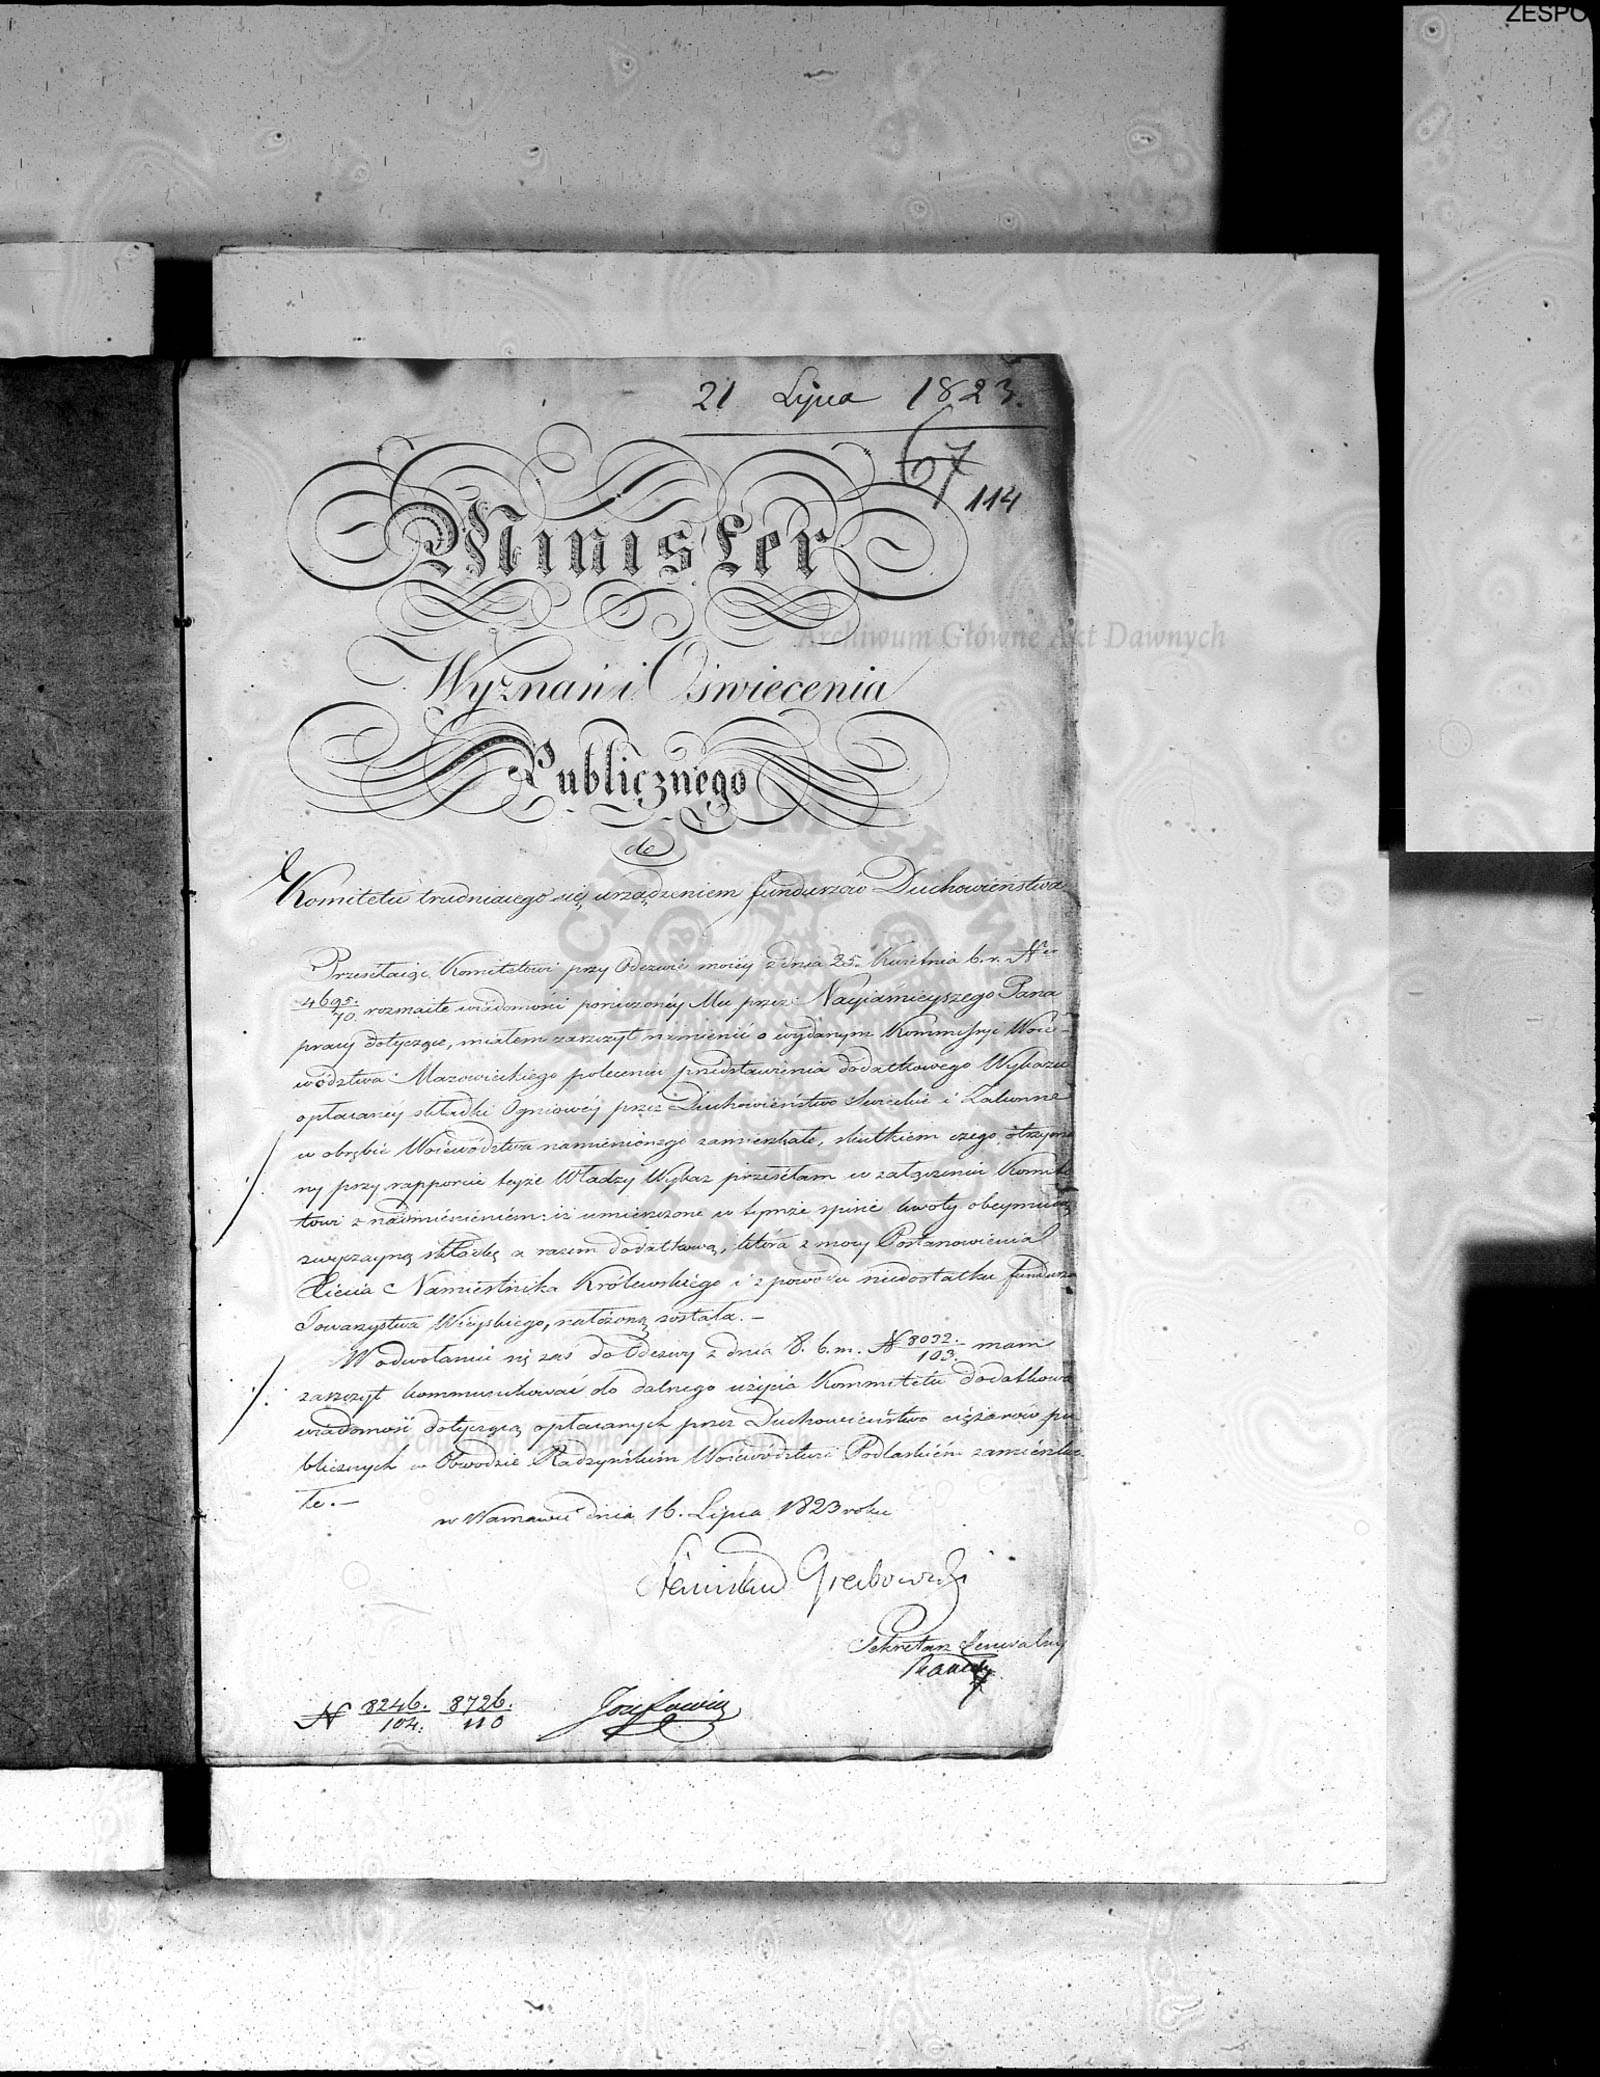 ZESPO
21 Lipca 1823.
67
114
Minister
Wyznań i Oświecenia
Publicznego
do
Komitetu trudniącego się urządzeniem funduszów Duchowieństwa
Przesełaiąc Komitetowi przy Odezwie moiéy z dnia 25. Kwietnia b. r. Ner
4695./70. rozmaite wiadomości poruczonéy Mu przez Nayiaśnieyszego Pana
pracy dotyczące, miałem zaszczyt namienić o wydanym Kommissyi Woie-
wództwa Mazowieckiego poleceniu przedstawienia dodatkowego Wykazu
opłacanéy składki Ogniowéy przez Duchowieństwo Świeckie i Zakonne
w obrębie Województwa namienionego zamieszkałe, skutkiem czego otrzyma
ny przy rapporcie teyże Władzy Wykaz przesełam w załączeniu Komite
towi z nadmienieniem: iż umieszczone w tymże spisie kwoty obeymuią
zwyczayną składkę a razem dodatkową, która z mocy Postanowienia
Xięcia Namiestnika Królewskiego i z powodu niedostatku fundusz
Towarzystwa Wieyskiego, nałożoną została. –
W odwołaniu się zaś do Odezwy z dnia 8. b. m. N 8032./103. mam
zaszczyt kommunikować do dalszego użycia Kommitetu dodatkowe
wiadomości dotyczącą opłacanych przez Duchowieństwo ciężarów pu
blicznych w Obwodzie Radzyńskim Województwie Podlaskiém zamieszka
łe. –
w Warszawie dnia 16. Lipca 1823 roku
Stanisław Grabowski
Sekretarz Jeneralny
N 8246./104. 8726./110
Józefowicz
Archiwum Główne Akt Dawnych
Archiwum Główne Akt Dawnych